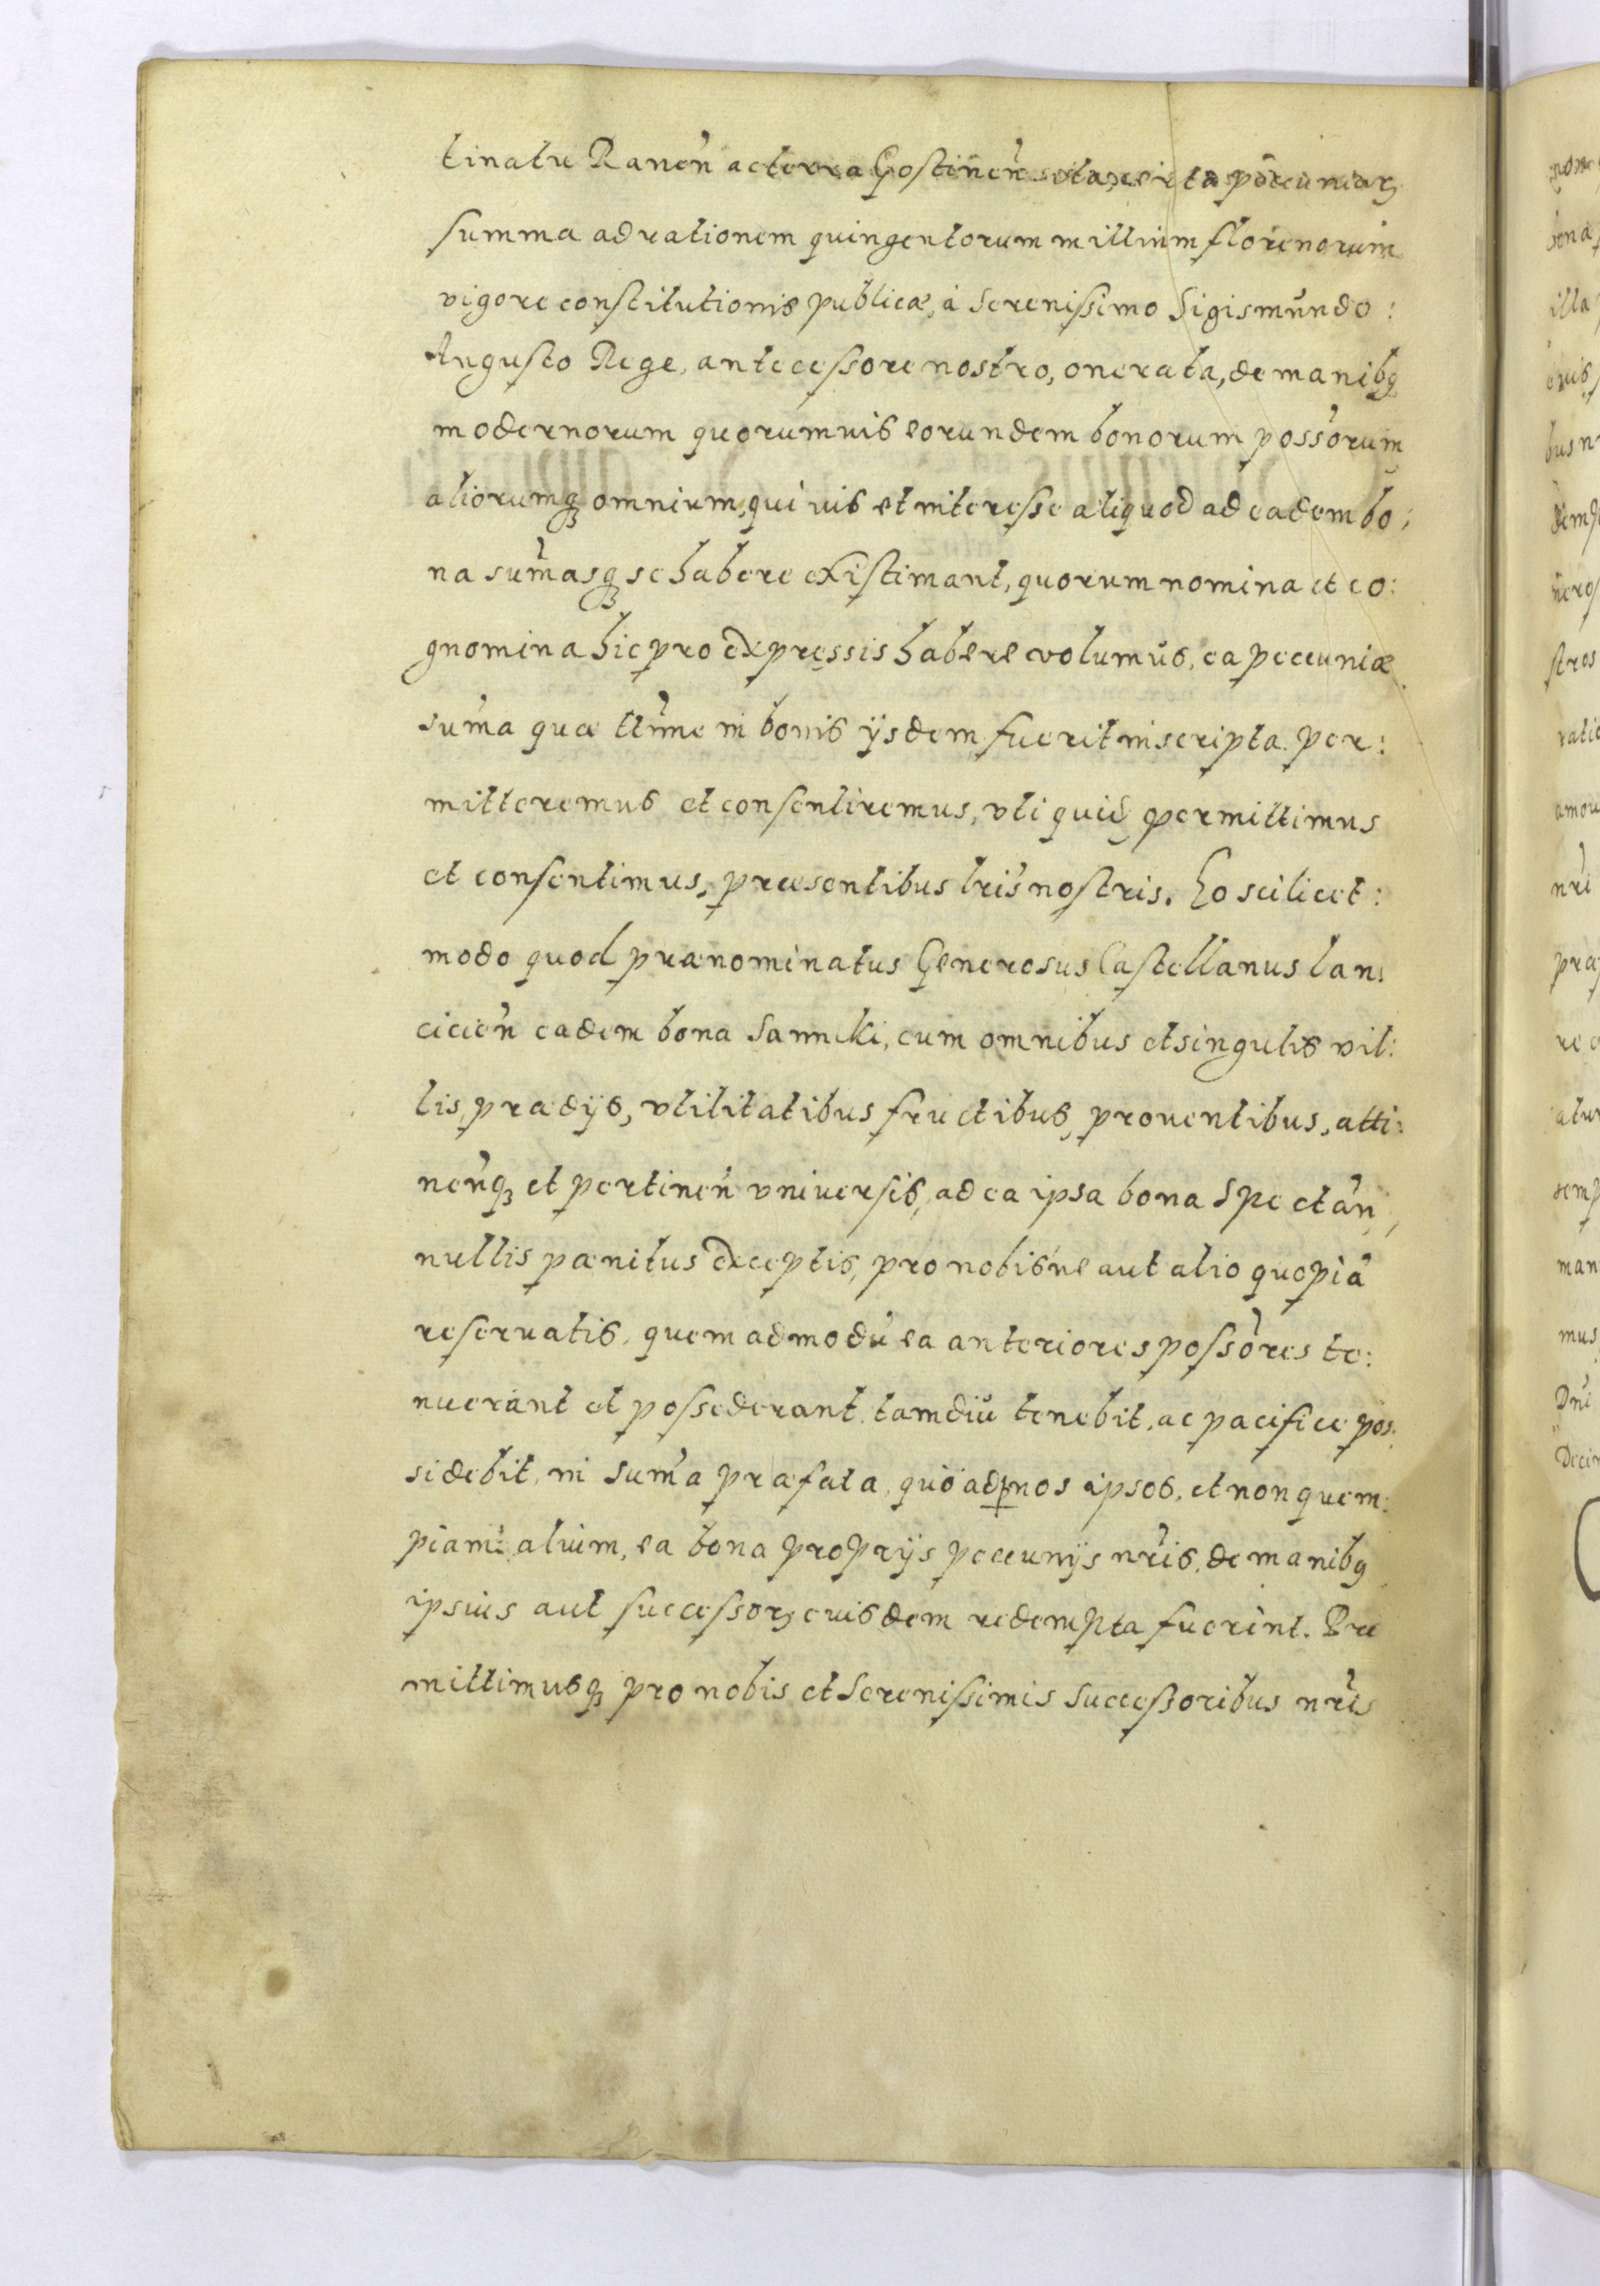 tinatu Rauen̄ ac terra Gostinen̄ sita, certa pecuniarꝝ
summa ad rationem quingentorum millium florenorum
vigore constitutionis publicæ, à Serenissimo Sigismundo:
Augusto Rege, antecessore nostro, onerata, de manibꝫ
modernorum quorumuis eorundem bonorum possōrum
aliorumqꝫ omnium, qui ius et interesse aliquod ad eadem bo:
na sum̄asqꝫ se habere existimant, quorum nomina et co:
gnomina hic pro expressis habere volumus, ea pecuniæ
sum̄a quæ tunc in bonis ijsdem fuerit inscripta. Per:
mitteremus et consentiremus, vti quidē permittimus
et consentimus, præsentibus lr̄is nostris. Eo scilicet:
modo quod prænominatus Generosus Castellanus Lan:
cicien̄ eadem bona Sanniki, cum omnibus et singulis vil:
lis prædijs, vtilitatibus fructibus, prouentibus, atti:
nen̄qꝫ et pertinen̄ vniversis, ad ea ipsa bona spectan̄,
nullis pænitus exceptis, pro nobis ne aut alio quopiā
reseruatis, quemadmodū ea anteriores possōres te:
nuerant et possederant, tamdiu tenebit, ac pacifice pos:
sidebit, in sum̄a præfata, quoad per nos ipsos, et non quem:
piam: alium, ea bona proprijs pecunijs nr̄is, de manibꝫ
ipsius aut successorꝝ euisdem redempta fuerint. Pro
mittimusqꝫ pro nobis et Serenissimis Successoribus nr̄is